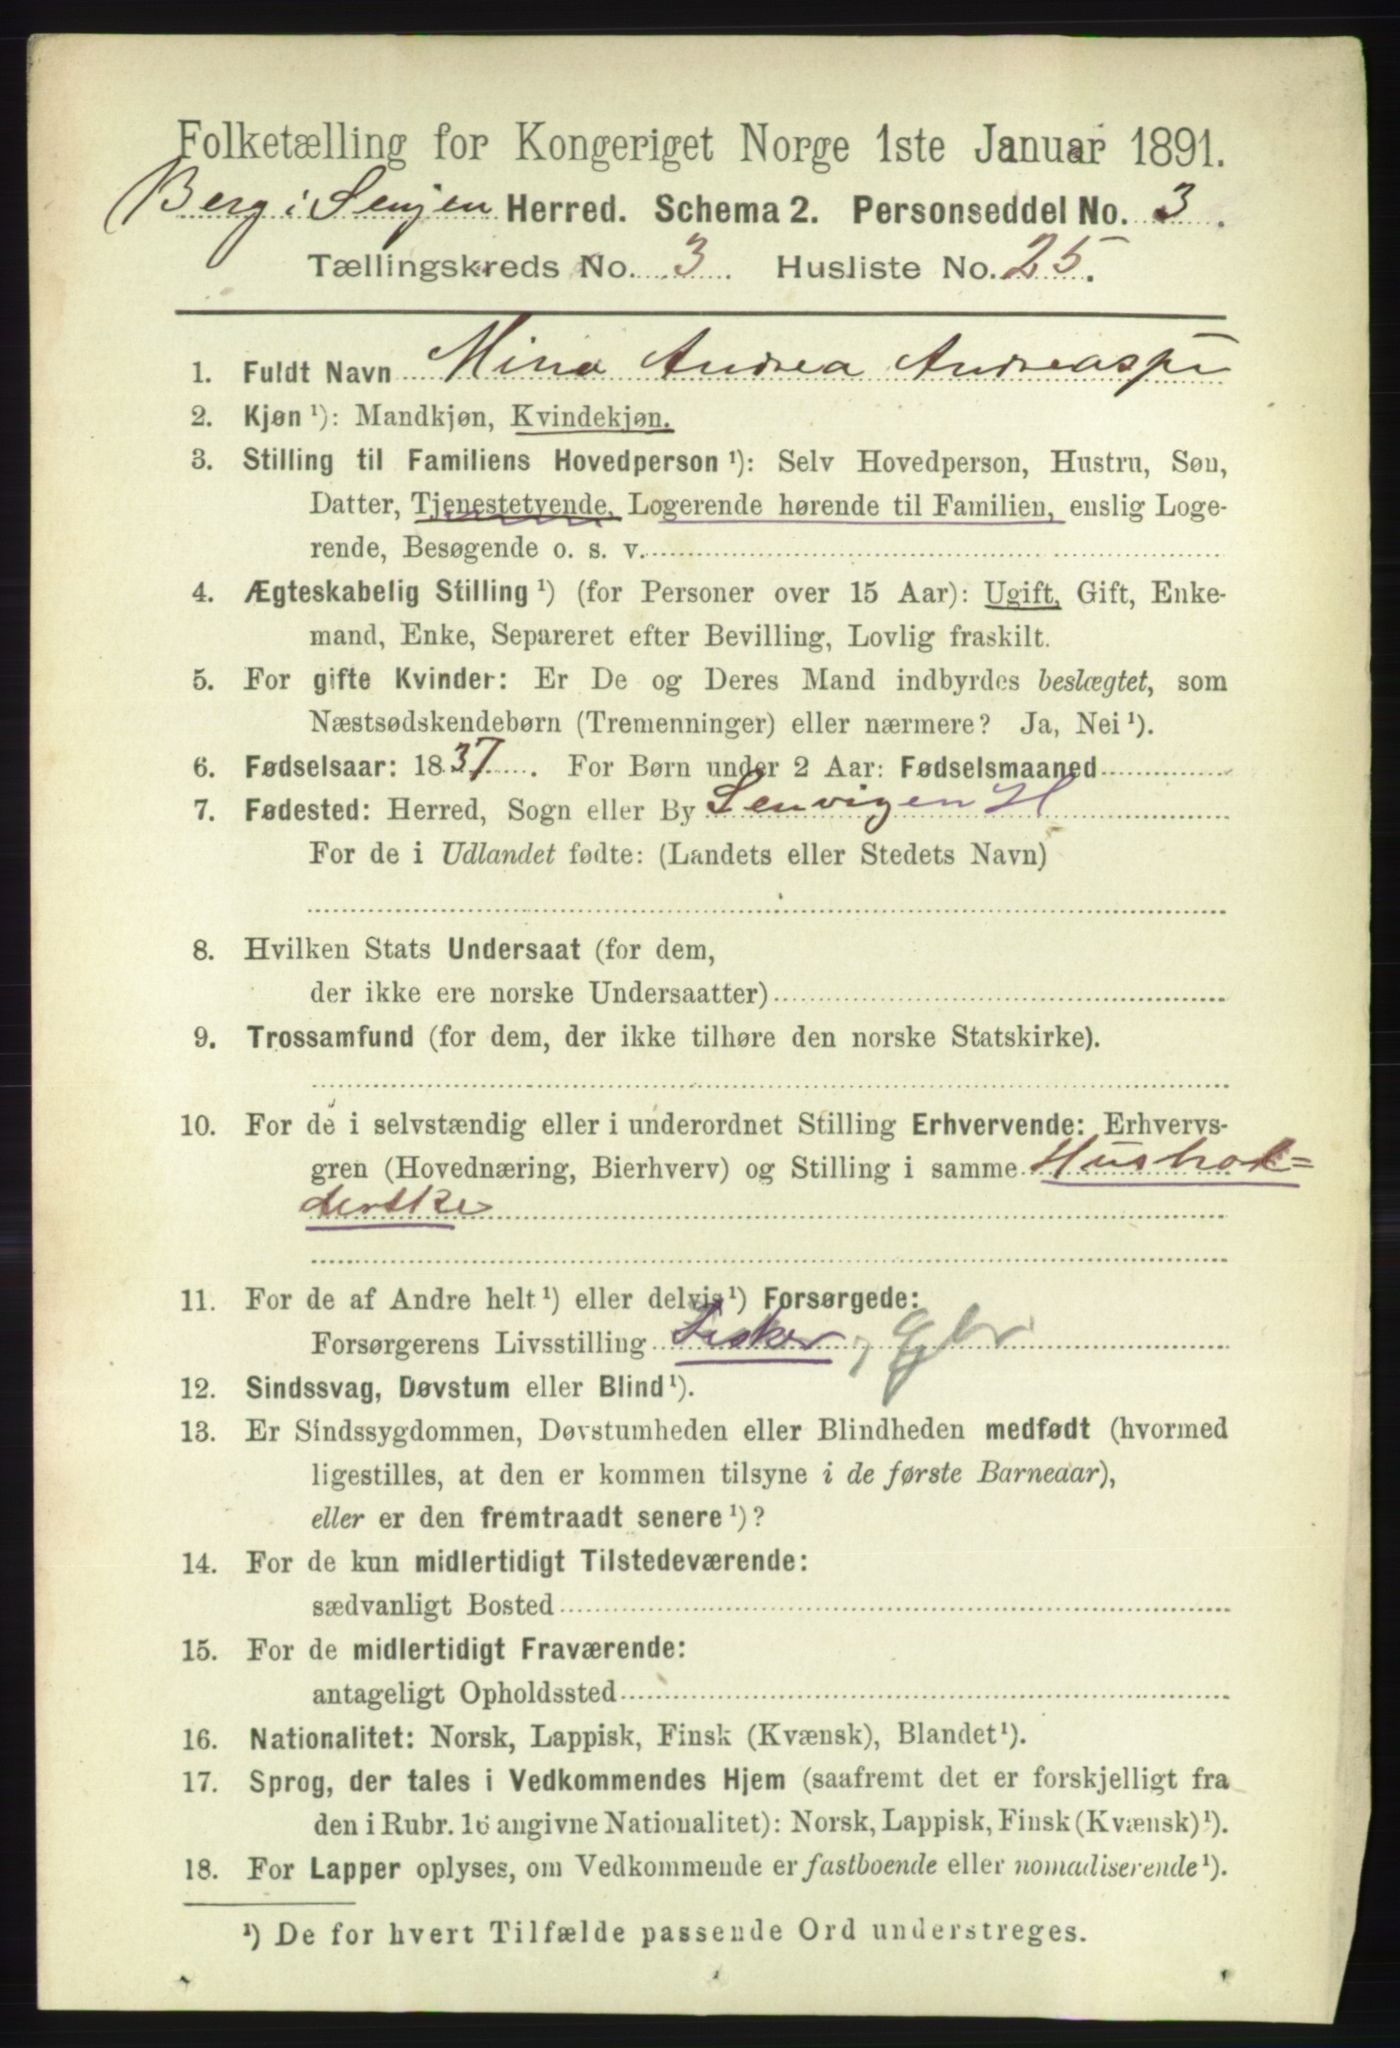 Folketælling for Kongeriget Norge 1ste Januar 1891.
Berg i Senjen Herred. Schema 2. Personseddel No. 3.
Tællingskreds No. 3. Husliste No. 25.
1. Fuldt Navn Mina Andrea Andreasp
2. Kjøn ¹): Mandkjøn, Kvindekjøn.
3. Stilling til Familiens Hovedperson ¹): Selv Hovedperson, Hustru, Søn,
Datter, Tjenestetyende, Logerende hørende til Familien, enslig Loge-
rende, Besøgende o. s. v.
4. Ægteskabelig Stilling ¹) (for Personer over 15 Aar): Ugift, Gift, Enke-
mand, Enke, Separeret efter Bevilling, Lovlig fraskilt.
5. For gifte Kvinder: Er De og Deres Mand indbyrdes beslægtet, som
Næstsødskendebørn (Tremenninger) eller nærmere? Ja, Nei ¹).
6. Fødselsaar: 1837. For Børn under 2 Aar: Fødselsmaaned
7. Fødested: Herred, Sogn eller By Lenvigen H
For de i Udlandet fødte: (Landets eller Stedets Navn)
8. Hvilken Stats Undersaat (for dem,
der ikke ere norske Undersaatter)
9. Trossamfund (for dem, der ikke tilhøre den norske Statskirke).
10. For de i selvstændig eller i underordnet Stilling Erhvervende: Erhvervs-
gren (Hovednæring, Bierhverv) og Stilling i samme Hushol=
derske
11. For de af Andre helt ¹) eller delvis ¹) Forsørgede:
Forsørgerens Livsstilling Fisker, Gbr
12. Sindssvag, Døvstum eller Blind ¹).
13. Er Sindssygdommen, Døvstumheden eller Blindheden medfødt (hvormed
ligestilles, at den er kommen tilsyne i de første Barneaar),
eller er den fremtraadt senere ¹)?
14. For de kun midlertidigt Tilstedeværende:
sædvanligt Bosted
15. For de midlertidigt Fraværende:
antageligt Opholdssted
16. Nationalitet: Norsk, Lappisk, Finsk (Kvænsk), Blandet ¹).
17. Sprog, der tales i Vedkommendes Hjem (saafremt det er forskjelligt fra
den i Rubr. 16 angivne Nationalitet): Norsk, Lappisk, Finsk (Kvænsk) ¹).
18. For Lapper oplyses, om Vedkommende er fastboende eller nomadiserende ¹).
¹) De for hvert Tilfælde passende Ord understreges.